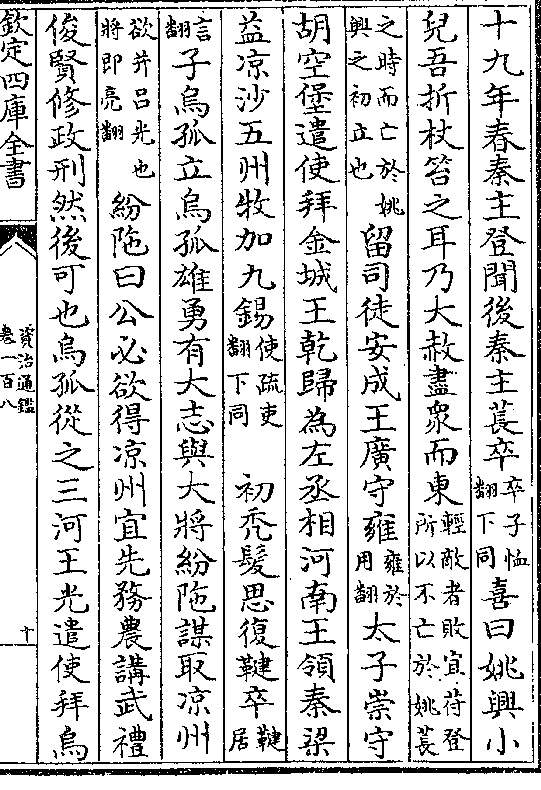 十九年春秦主登聞後秦主萇卒卒子恤翻下同喜曰姚興小
兒吾折杖笞之耳乃大赦盡衆而東輕敵者敗宜苻登所以不亡於姚萇
之時而亡於姚興之初立也留司徒安成王廣守雍雍於用翻太子崇守
胡空堡遣使拜金城王乾歸為左丞相河南王領秦梁
益凉沙五州牧加九錫使疏吏翻下同　初禿髮思復鞬卒鞬居
言翻子烏孤立烏孤雄勇有大志與大將紛陁謀取凉州
欲并吕光也將即亮翻紛陁曰公必欲得凉州宜先務農講武禮
俊賢修政刑然後可也烏孤從之三河王光遣使拜烏
欽定四庫全書
資治通鑑
卷一百八
十